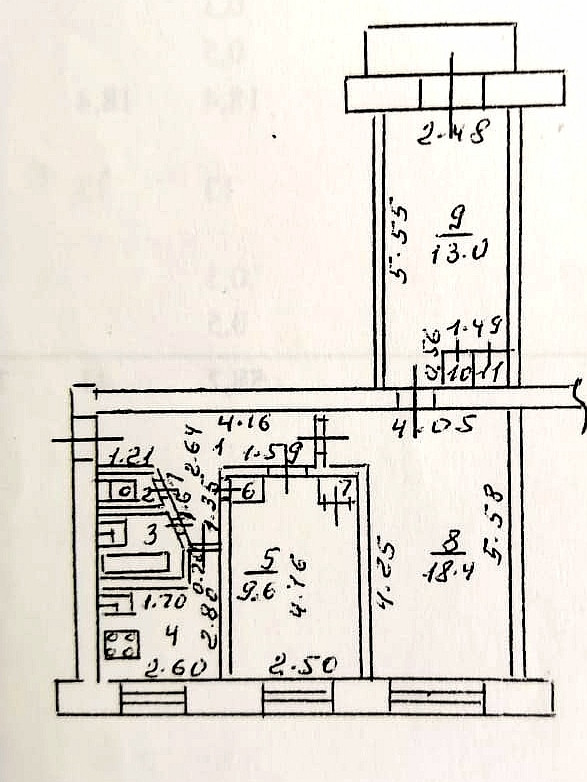 2.48
5.55
9
13.0
0.56
1.49
10
11
4.16
4.05
1
2.64
1.59
1.21
2
6
7
1.35
3
5
9.6
4.16
8
18.4
5.58
4.25
1.70
2.80
4
2.60
2.50